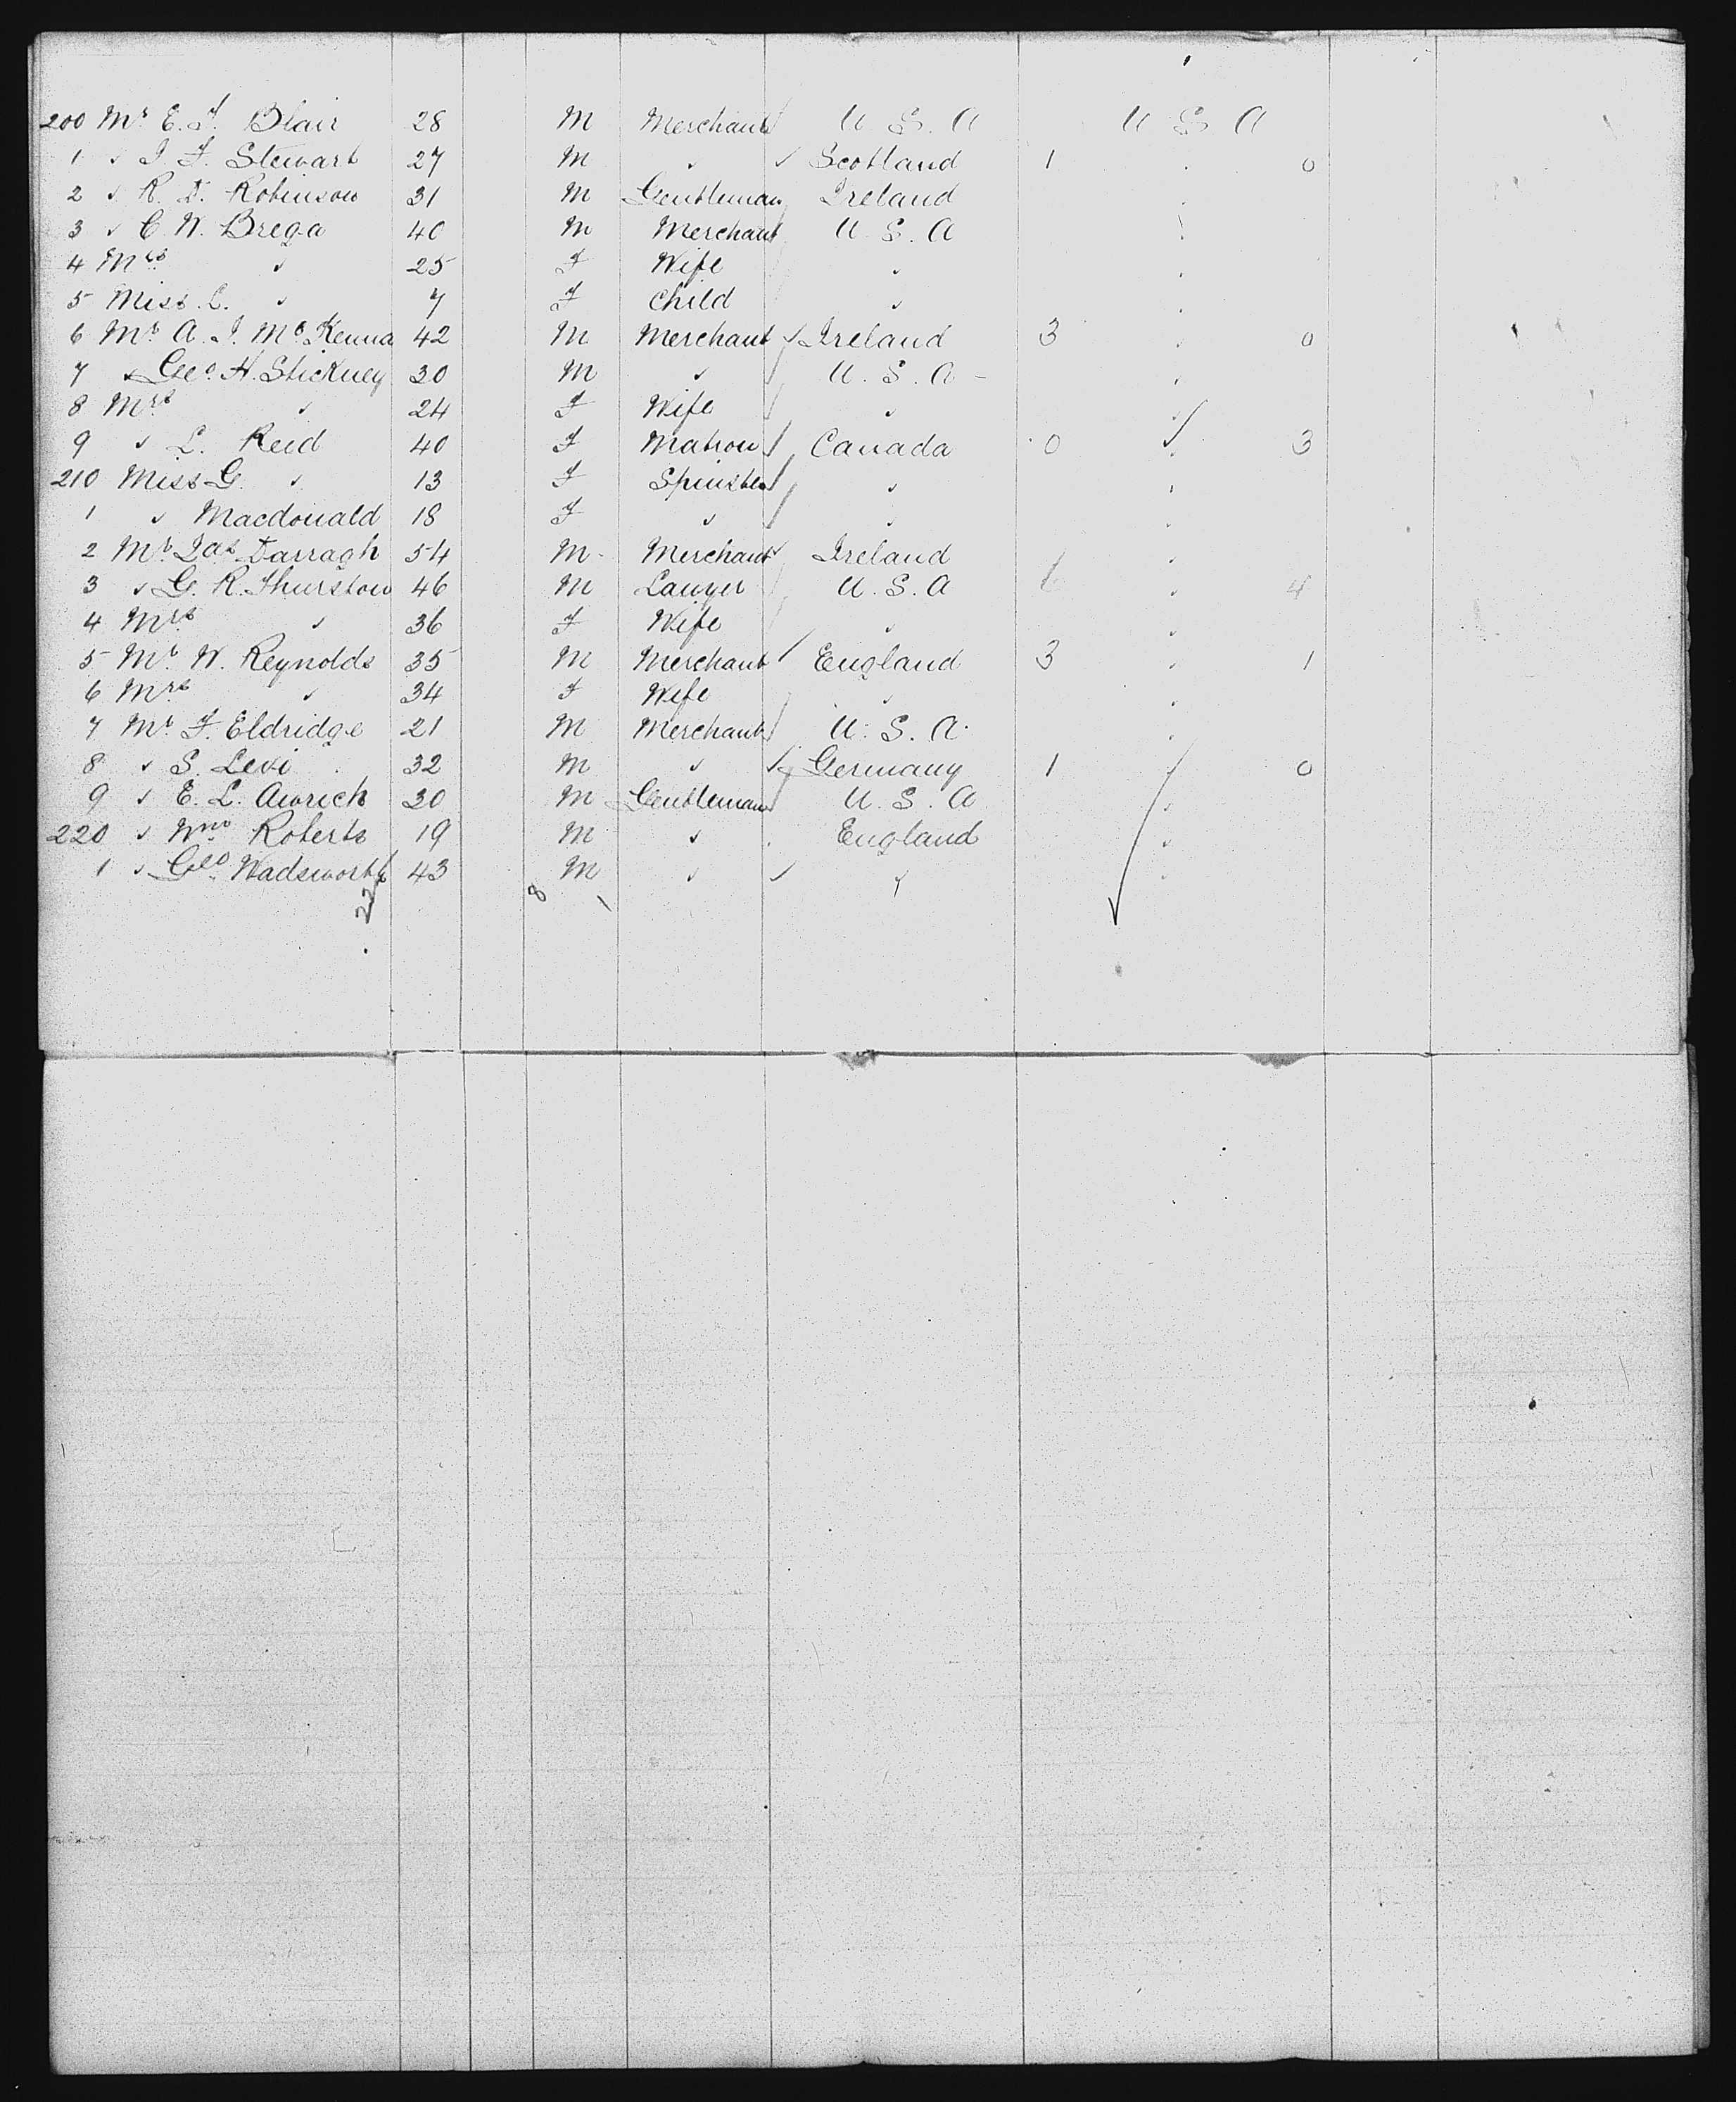 200 Mr E. F. Blair 28 M Merchant U. S. A U S A
1 " J. F. Stewart 27 M " Scotland 1 " 0
2 " R. D. Robinson 31 M Gentleman Ireland "
3 " C. W. Brega 40 M Merchant U. S. A "
4 Mrs " 25 F Wife " "
5 Miss L. " 7 F Child " "
6 Mr A. J. McKenna 42 M Merchant Ireland 3 " 0
7 " Geo. H. Stickney 30 M " U. S. A "
8 Mrs " 24 F Wife " "
9 " L. Reid 40 F Matron Canada 0 " 3
210 Miss G. " 13 F Spinster " "
1 " Macdonald 18 F " " "
2 Mr Jas Darragh 54 M Merchant Ireland "
3 " G. R. Thurston 46 M Lawyer U. S. A " 4
4 Mrs " 36 F Wife " "
5 Mr W. Reynolds 35 M Merchant England 3 " 1
6 Mrs " 34 F Wife " "
7 Mr F. Eldridge 21 M Merchant U. S. A. "
8 " S. Levi 32 M " Germany 1 " 0
9 " E. L. 30 M Gentleman U. S. A "
220 " Wm Roberts 19 M " England "
1 " Geo. Wadsworth 43 M " " "
22 8